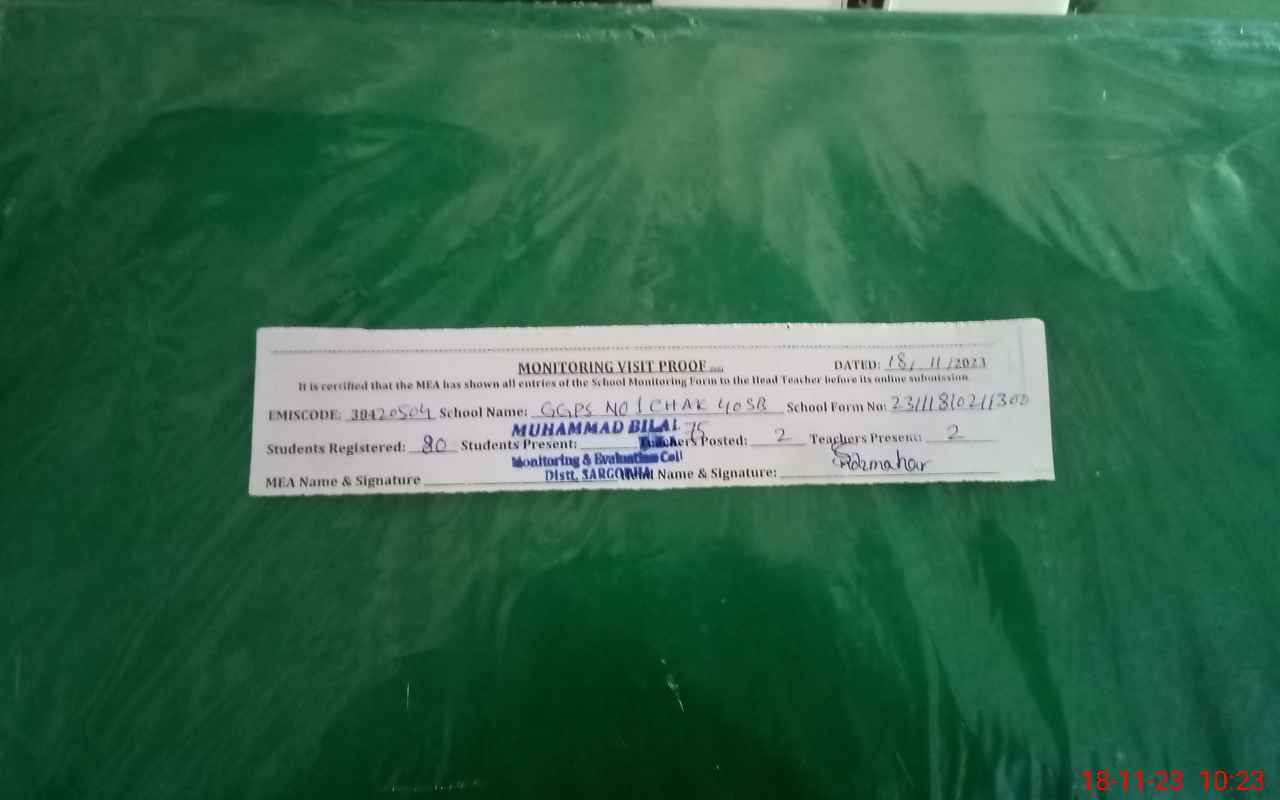 MONITORING VISIT PROOF DATED: 18/11/2023
It is certified that the MEA has shown all entries of the School Monitoring Form to the Head Teacher before its online submission.
EMISCODE: 38420504 School Name: GGPS NO 1 CHAK 40SB School Form No: 23111810211300
MUHAMMAD BILAL
Students Registered: 80 Students Present: 75 Teachers Posted: 2 Teachers Present: 2
Monitoring & Evaluation Cell
Distt. SARGODHA
MEA Name & Signature Name & Signature:
18-11-23 10:23